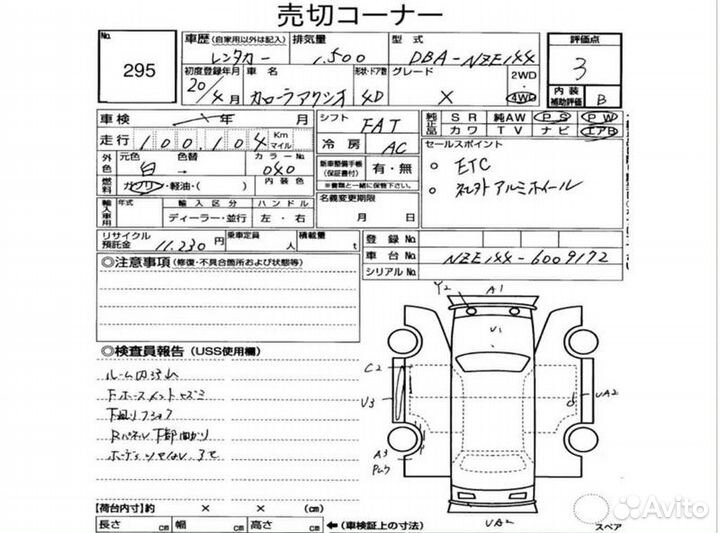 売切コーナー
No. 295
車歴 (自家用以外は記入) レンタカー
排気量 1,500
型式 DBA-NZE144
評価点 3
初度登録年月 20年4月
車名 カローラアクシオ
形状・ドア数 4D
グレード X
2WD・4WD
内装補助評価 B
車検 年 月
走行 100,104 Km マイル
シフト FAT
冷房 AC
純正品 SR 純AW PS PW
カワ TV ナビ エアB
外色 元色 白 色替 →
カラーNo 040
内装色
燃料 ガソリン・軽油・( )
新車整備手帳(保証書付) 有・無
※書類と一緒に保管下さい。
セールスポイント
ETC
社外アルミホイール
輸入車用 年式
輸入区分 ディーラー・並行
ハンドル 左・右
名義変更期限 月 日
リサイクル預託金 11,230 円
乗車定員 人
積載量 t
登録No.
車台No. NZE144-6009172
シリアルNo.
◎注意事項 (修復・不具合箇所および状態等)
◎検査員報告 (USS使用欄)
ルーム内汚れ
Y2
A1
V1
C2
U3
A3
UA2
UA2
スペア
【荷台内寸】約 × × (cm)
長さ cm 幅 cm 高さ cm
←(車検証上の寸法)
Avito